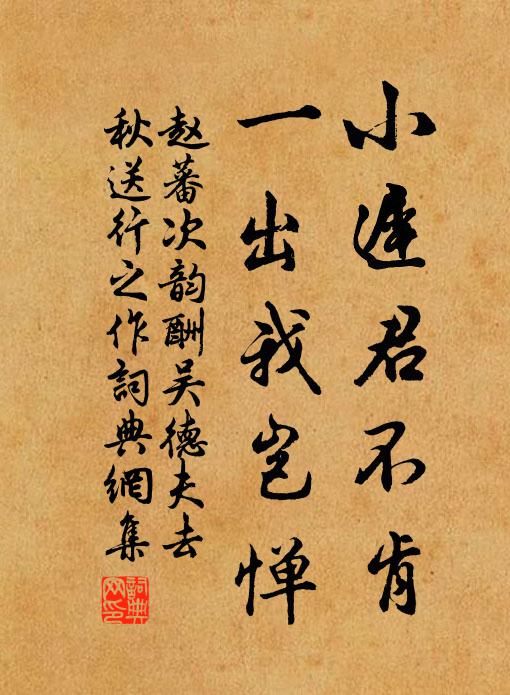 小遲君不肯
一出我岂惮
赵蕃次韵酬吴德夫去
秋送行之作詞典網集
詞典網印